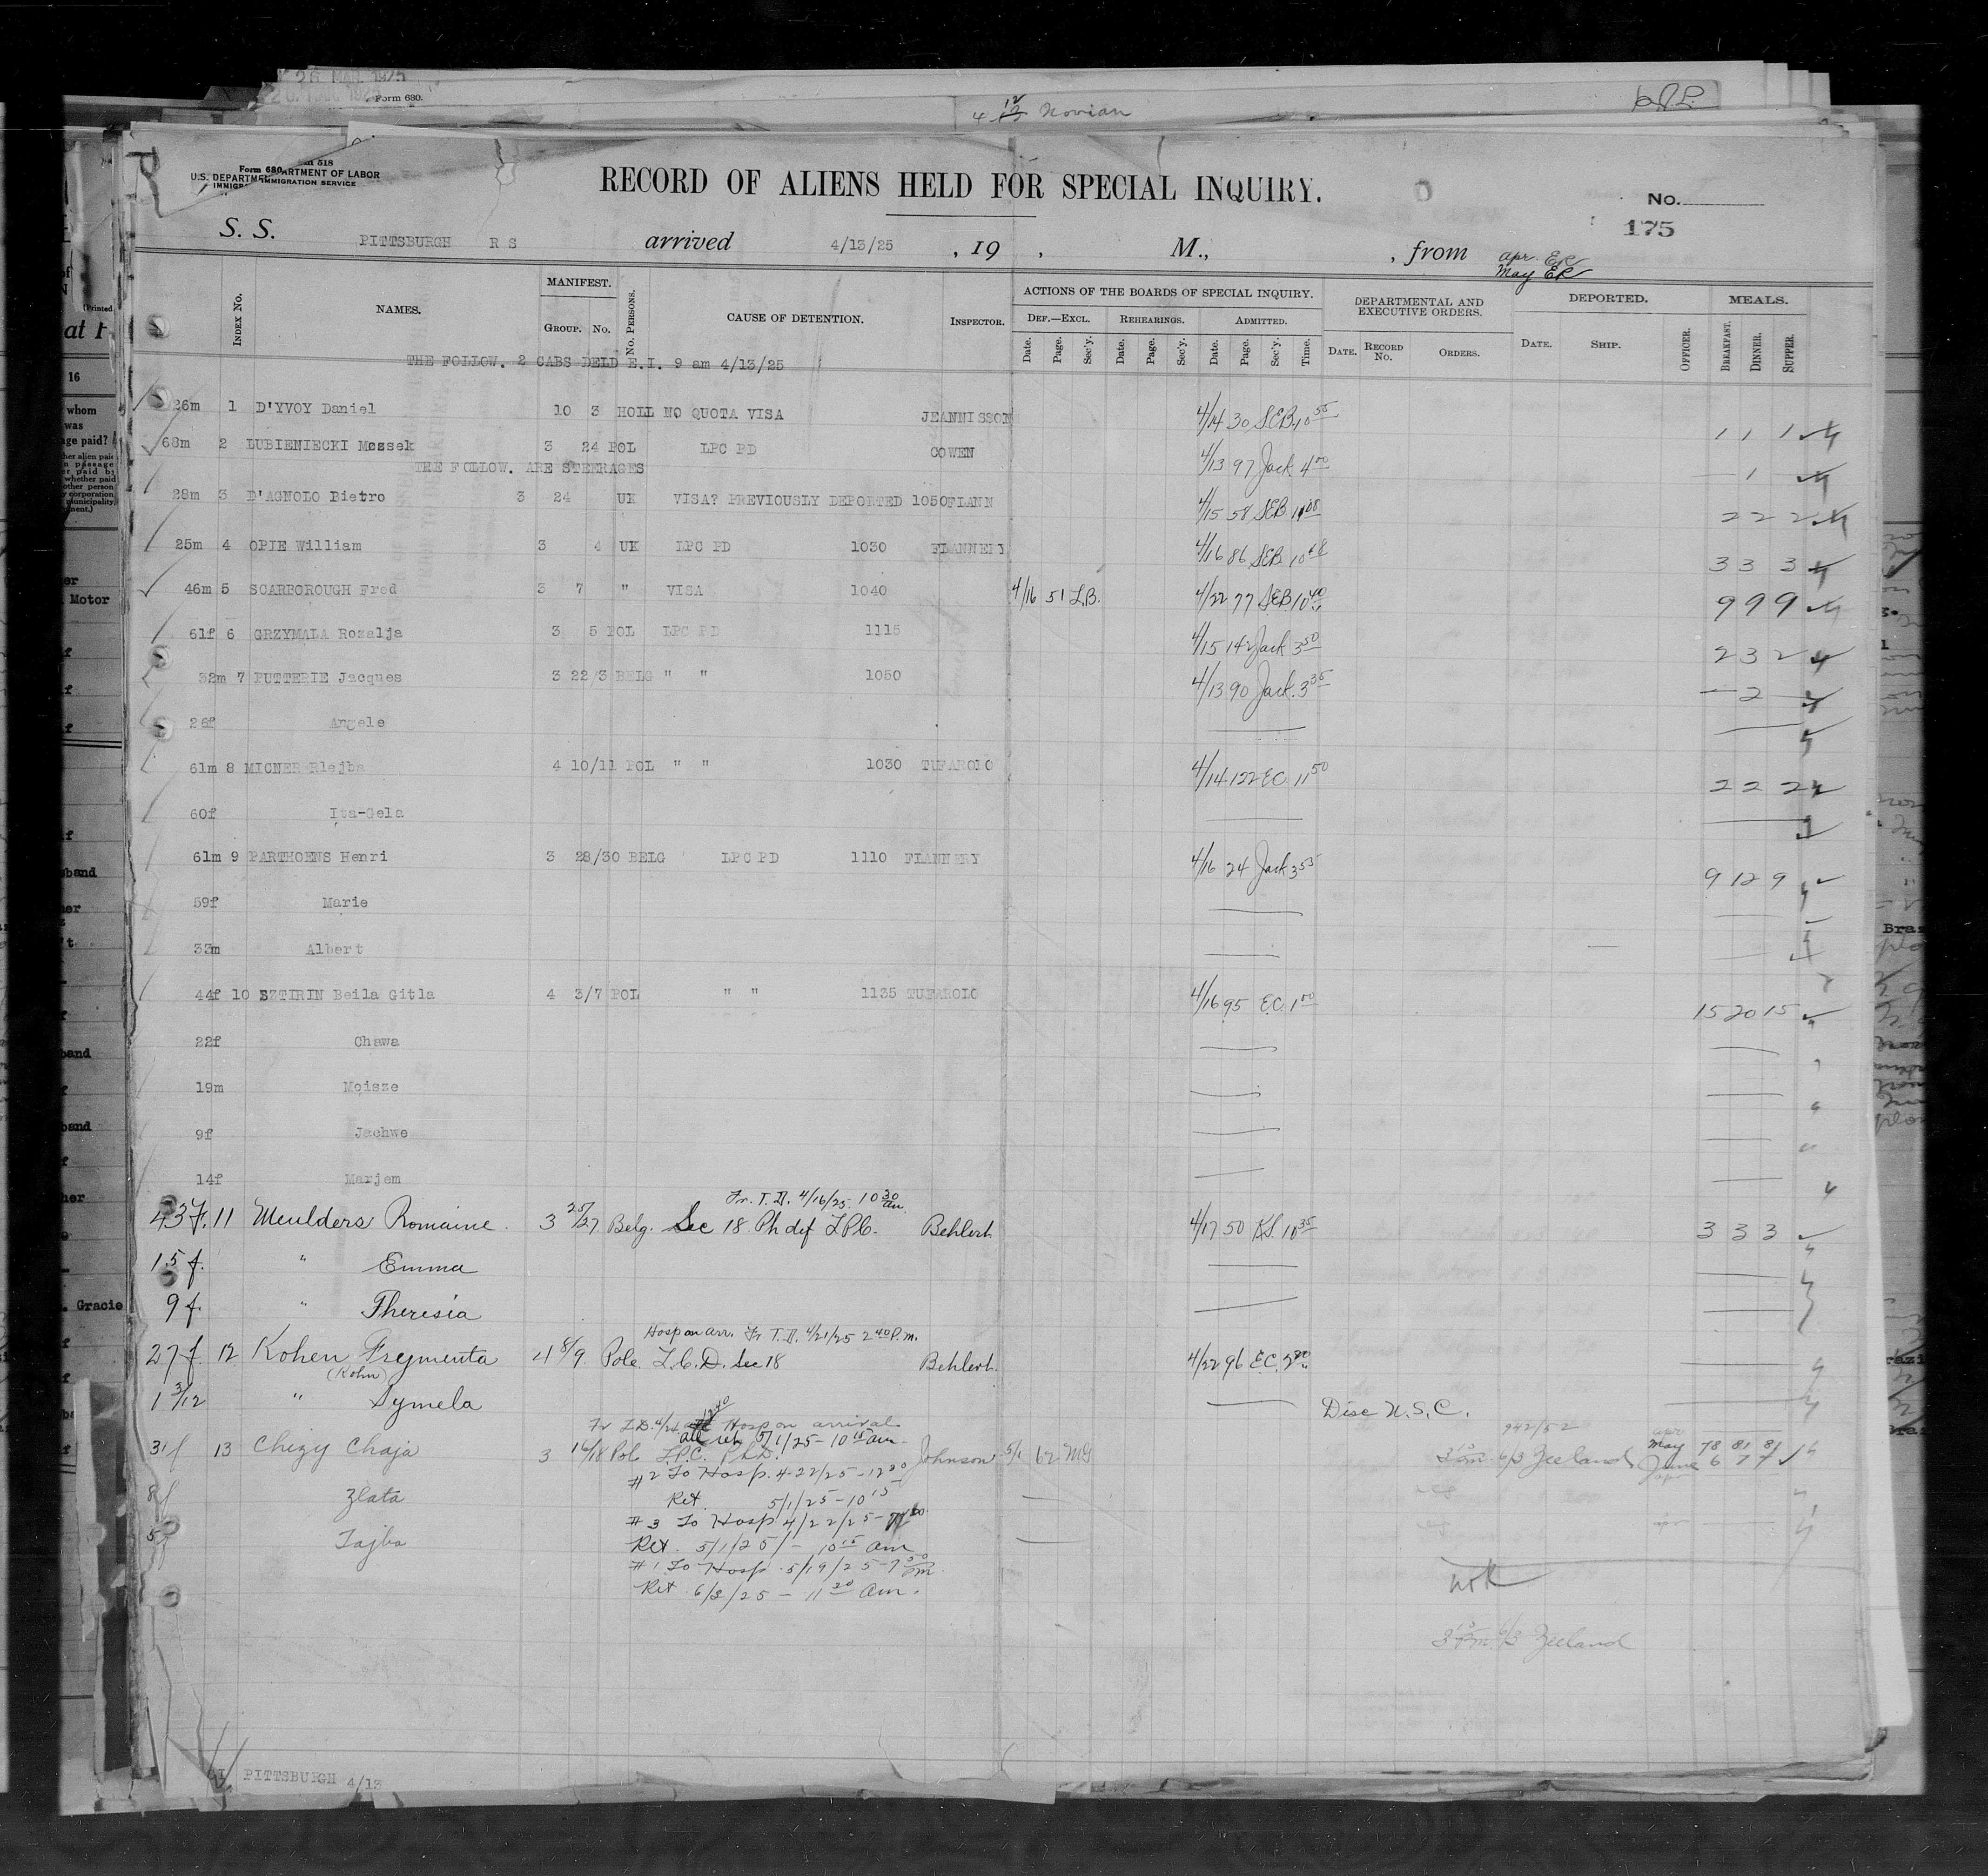 26 MAR 1925
Form 680.
4 12 Novian
Form 680
U.S. DEPARTMENT OF LABOR
IMMIGRATION SERVICE
RECORD OF ALIENS HELD FOR SPECIAL INQUIRY.
No.
175
S. S. PITTSBURGH R S arrived 4/13/25 , 19 , M., , from
Apr. ER
May ER
INDEX No. NAMES. MANIFEST. GROUP. No. No. PERSONS. CAUSE OF DETENTION. INSPECTOR.
ACTIONS OF THE BOARDS OF SPECIAL INQUIRY. DEPARTMENTAL AND EXECUTIVE ORDERS. DEPORTED. MEALS.
DEF.—EXCL. REHEARINGS. ADMITTED.
Date. Page. Sec'y. Date. Page. Sec'y. Date. Page. Sec'y. Time. DATE. RECORD No. ORDERS. DATE. SHIP. OFFICER. BREAKFAST. DINNER. SUPPER.
THE FOLLOW. 2 CABS DELD E.I. 9 am 4/13/25
26m 1 D'YVOY Daniel 10 3 HOLL NO QUOTA VISA JEANNISSON 4/14 30 SEB 10 55 1 1 1
68m 2 LUBIENIECKI Mossek 3 24 POL LPC PD COWEN 4/13 97 Jack 4 00 — 1
THE FOLLOW. ARE STEERAGES
28m 3 D'AGNOLO Bietro 3 24 UK VISA? PREVIOUSLY DEPORTED 1050 FLANN 4/15 58 SEB 2 2 2
25m 4 OPIE William 3 4 UK LPC PD 1030 FLANNERY 4/16 86 SEB 10 48 3 3 3
46m 5 SCARBOROUGH Fred 3 7 " VISA 1040 4/16 51 L.B. 4/22 77 SEB 10 40 9 9 9
61f 6 GRZYMALA Rozalja 3 5 POL LPC PD 1115 4/15 142 Jack 3 50 2 3 2
32m 7 PUTTERIE Jacques 3 22/3 BELG " " 1050 4/13 90 Jack. 3 35 — 2 —
26f Angele
61m 8 MICNER Rlejba 4 10/11 POL " " 1030 TUFAROLO 4/14 122 EC. 11 50 2 2 2
60f Ita-Gela
61m 9 PARTHOENS Henri 3 28/30 BELG LPC PD 1110 FLANNERY 4/16 24 Jack 3 55 9 12 9
59f Marie
33m Albert
44f 10 SZTIRIN Beila Gitla 4 3/7 POL " " 1135 TUFAROLO 4/16 95 E.C. 1 00 15 20 15
22f Chawa
19m Moisze
9f Jachwe
14f Marjem
Fr. T.D. 4/16/25. 10 30 am
43 f. 11 Meulders Romaine. 3 25/27 Belg. Sec 18 Ph def L.P.C. Behlert 4/17 50 K.S. 10 35 3 3 3
15 f. " Emma
9 f. " Theresia
Hosp on arr. Fr T.D. 4/21/25 2 40 P.m.
27 f. 12 Kohen Frymenta 4 8/9 Pole L.C.D. Sec 18 Behlert. 4/22 96 E.C.
(Kohn)
1 3/12 " Symela Disc U.S.C.
Fr I.D. 4/24 Hosp on arrival 942/52 Apr
all ret 5/1/25 - 10 15 am
31 f 13 Chizy Chaja 3 16/18 Pol. L.P.C. Ph.D. Johnson 5/1 62 MG 6/3 Zeeland May 78 81 81
June 6 7 7
#2 To Hosp. 4-22/25 - 12 30
8 f Zlata Ret. 5/1/25 - 10 15
#3 To Hosp 4/22/25 -
5 f Tajba Ret. 5/1/25 - 10 15 am
#1 To Hosp. 5/19/25 - 7 50 pm
Ret. 6/3/25 - 11 20 am.
6/3 Zeeland
SI PITTSBURGH 4/13